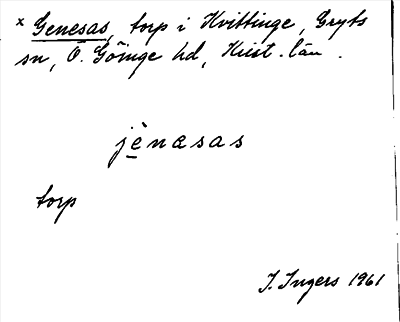 x Genesas, torp i Hvittinge, Gryts
sn, Ö. Göinge hd, Krist. län.
jènasas
torp
I. Ingers 1961